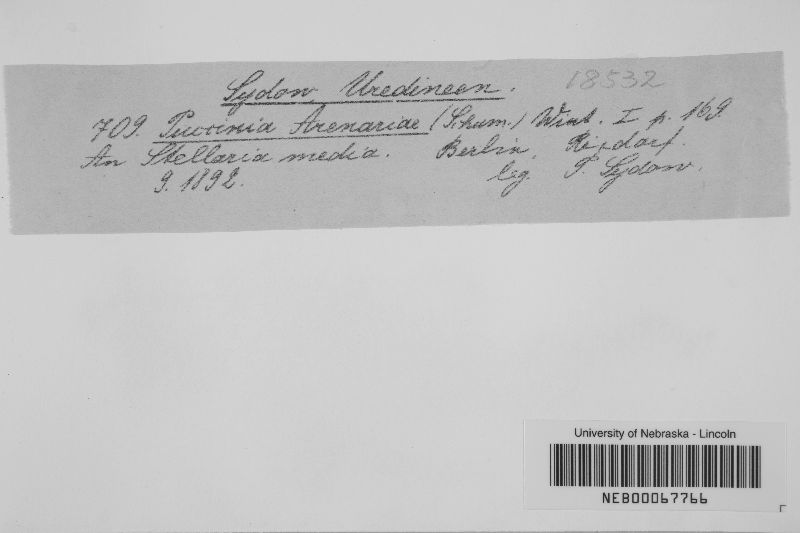 Sydow, Uredineen. 18532
709. Puccinia Arenariae (Schum.) Wint. I p. 169.
An Stellaria media. Berlin, Rixdorf.
9. 1892. leg. P. Sydow.
University of Nebraska - Lincoln
NEB00067766